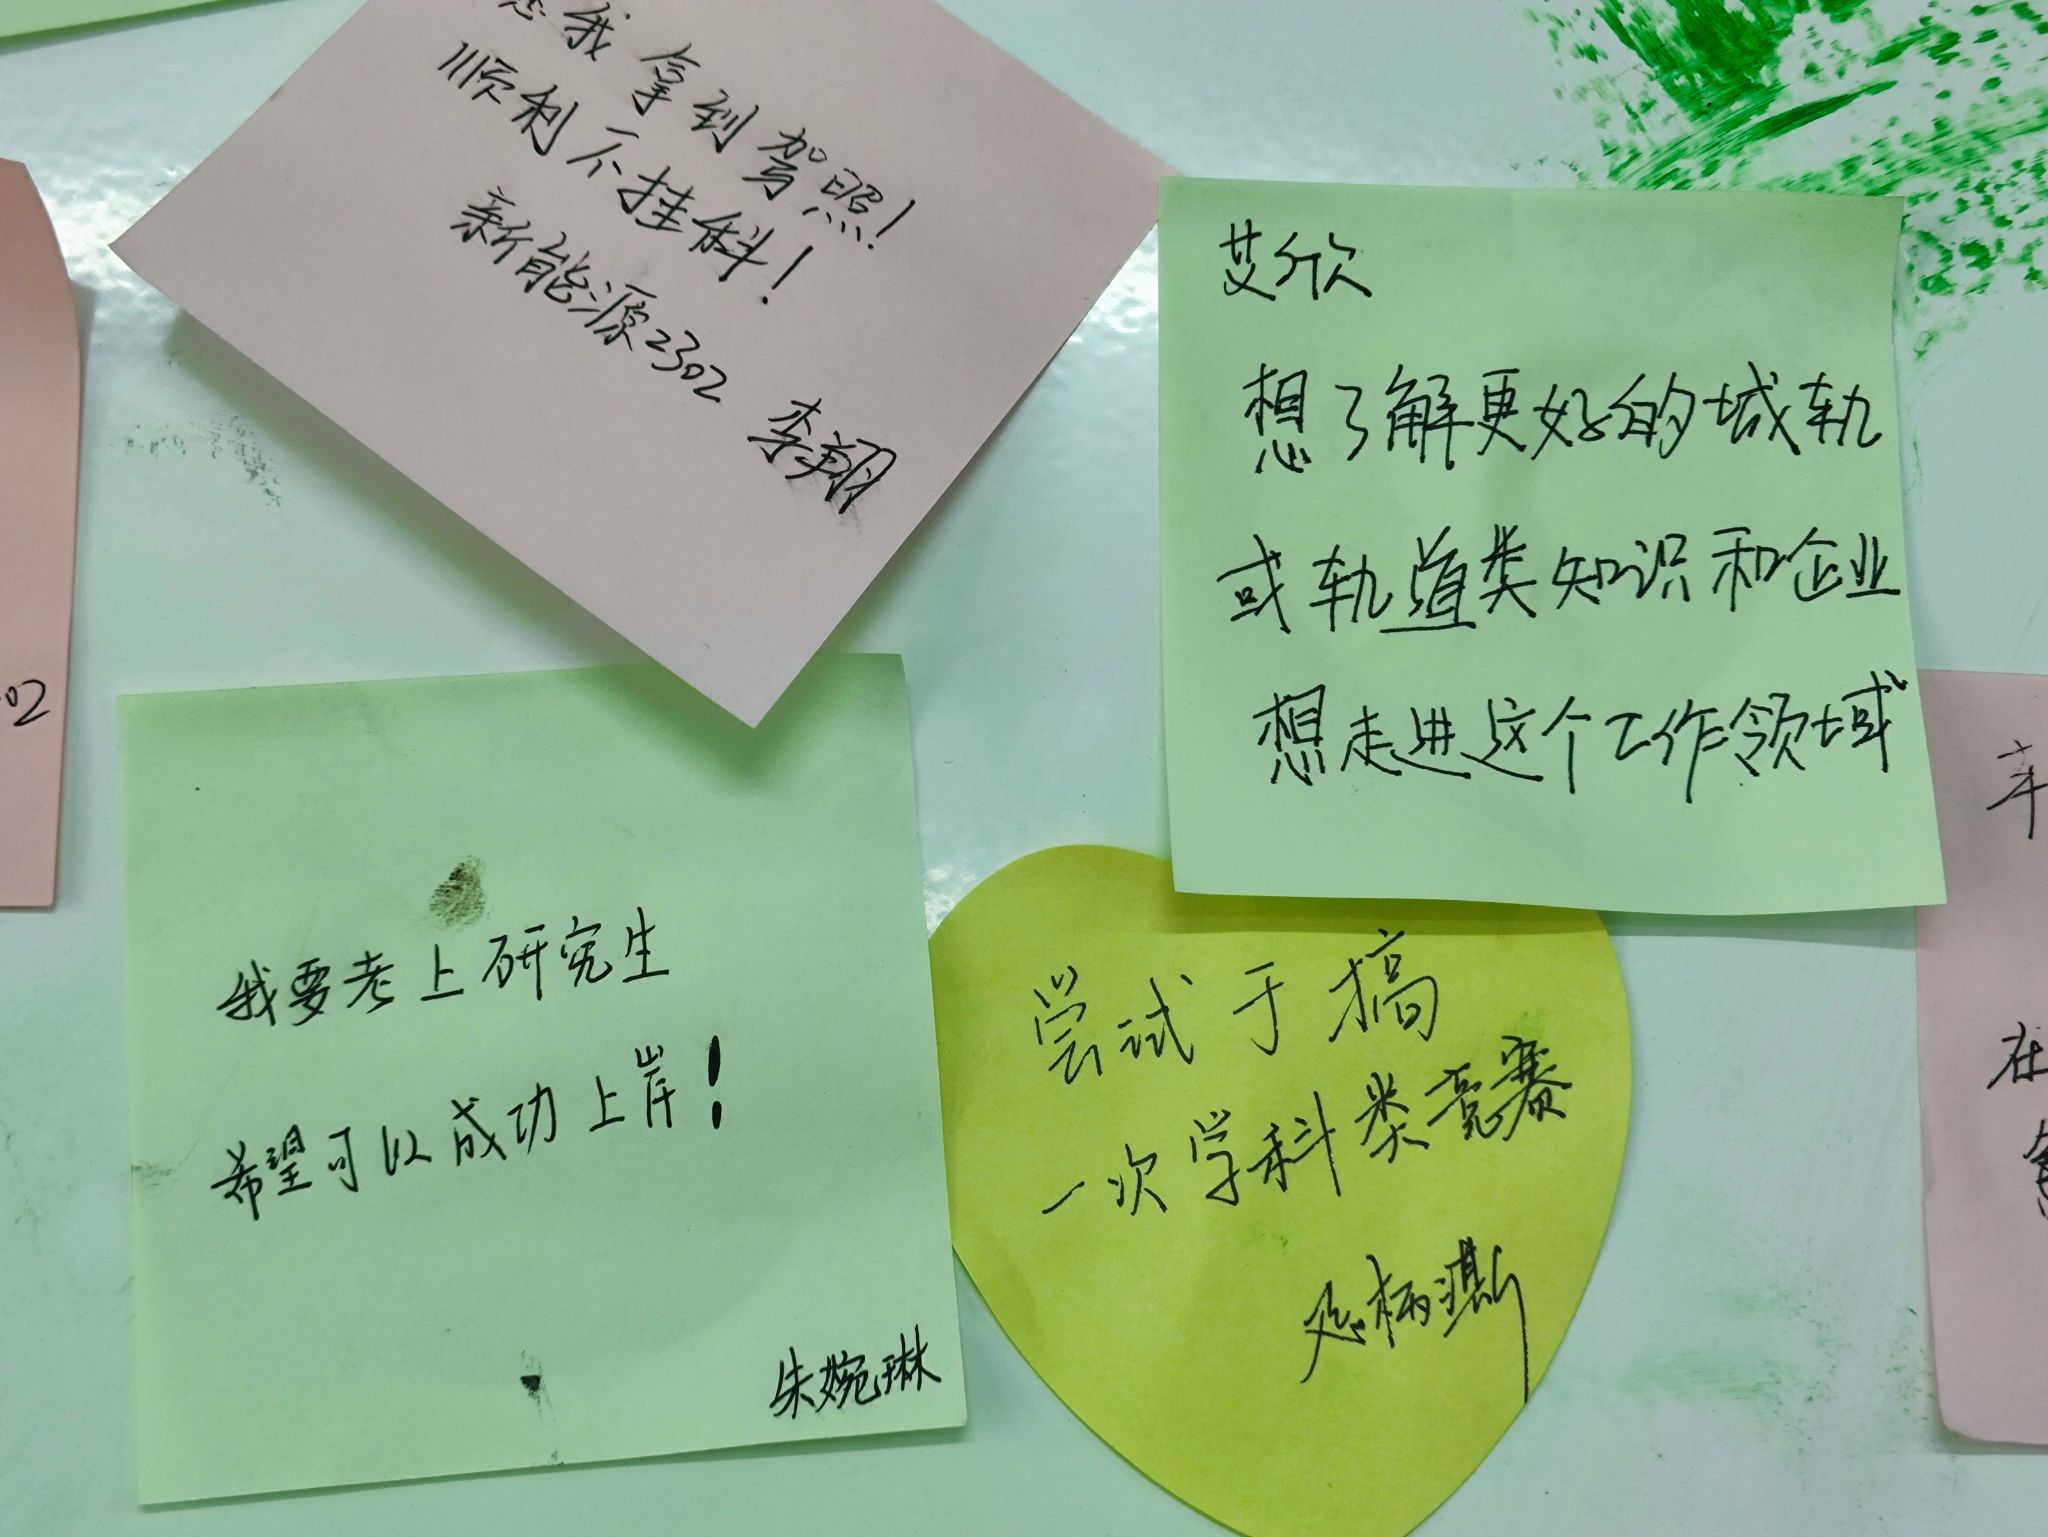 我拿到驾照!
顺利不挂科!
新能源2302 李翔
艾欣
想了解更好的城轨
或轨道类知识和企业
想走进这个工作领域
我要考上研究生
希望可以成功上岸!
朱婉琳
尝试于搞
一次学科类竞赛
02
在